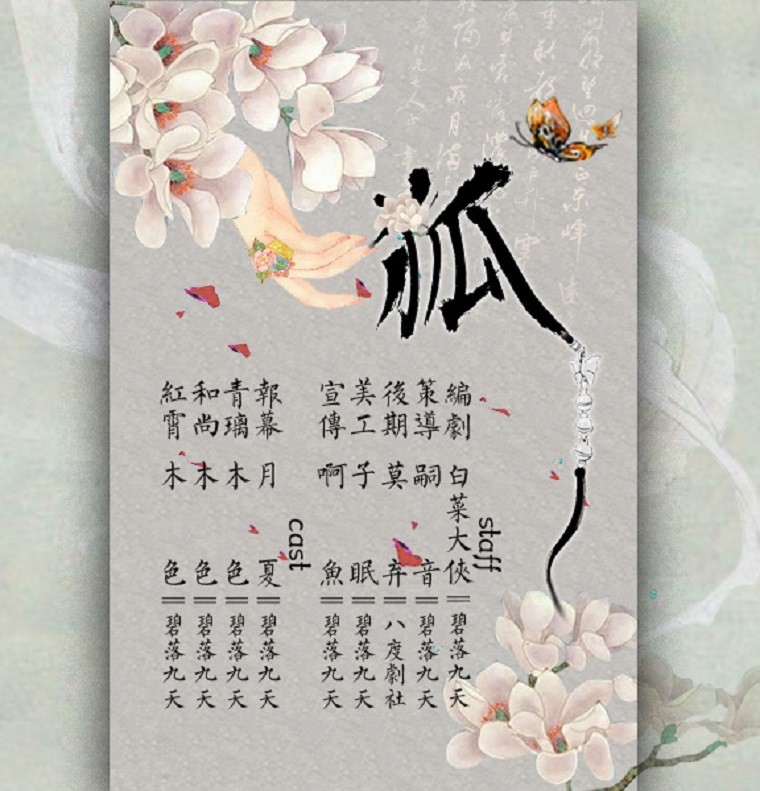 狐
staff
編劇 白菜大俠||碧落九天
策導 嗣音||碧落九天
後期 莫弃||八度劇社
美工 子眠||碧落九天
宣傳 啊魚||碧落九天
cast
報幕 月夏||碧落九天
青璃 木色||碧落九天
和尚 木色||碧落九天
紅霄 木色||碧落九天